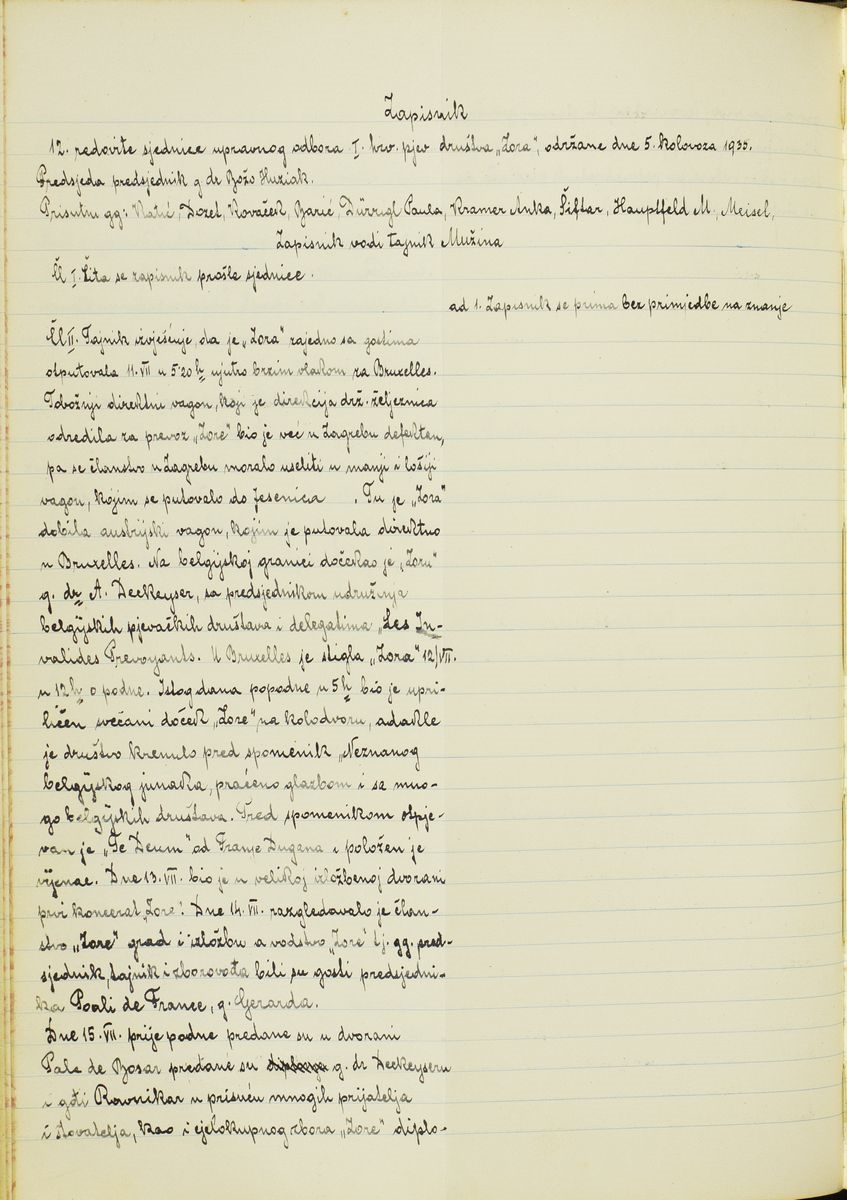 Zapisnik
12. redovite sjednice upravnog odbora I. hrv. pjev društva „Zora", održane dne 5. kolovoza 1935.
Predsjeda predsjednik g dr Božo Huziak.
Prisutni gg: Katić, Dozet, Kovaček, Barić, Dürrigl Paula, Kramer Anka, Šiftar, Hauptfeld M., Meisel,
Zapisnik vodi tajnik Mužina
Čl I. Čita se zapisnik prošle sjednice.
ad 1. Zapisnik se prima bez primjedbe na znanje
Čl II. Tajnik izvješćuje, da je „Zora" zajedno sa gostima
otputovala 11. VII u 5·20 h ujutro brzim vlakom za Bruxelles.
Tobožnji direktni vagon, koji je direkcija drž. željeznica
odredila za prevoz „Zore" bio je već u Zagrebu defektan,
pa se članstvo u Zagrebu moralo useliti u manji i lošiji
vagon, kojim se putovalo do Jesenica . Tu je „Zora"
dobila austrijski vagon, kojim je putovala direktno
u Bruxelles. Na belgijskoj granici dočekao je „Zoru"
g. dr A. Deckeyser, sa predsjednikom udruženja
belgijskih pjevačkih društava i delegatima „Les In-
valides Prevoyants. U Bruxelles je stigla „Zora" 12/VII.
u 12 h o podne. Istog dana popodne u 5 h bio je upri-
ličen svečani doček „Zore", na kolodvoru, a dakle
je društvo krenulo pred spomenik „Neznanog
belgijskog junaka, praćeno glazbom i sa mno-
go belgijskih društava. Pred spomenikom otpje-
van je „Te Deum" od Franje Dugana i položen je
vijenac. Dne 13. VII. bio je u velikoj izložbenoj dvorani
prvi koncerat „Zore". Dne 14. VII. razgledavalo je član-
stvo „Zore" grad i izložbu a vodstvo „Zore" tj. gg. pred-
sjednik, tajnik i zborovođa bili su gosti predsjedni-
ka Poali de France, g. Gerarda.
Dne 15. VII. prije podne predane su u dvorani
Pale de Bosar predane su diplome g. dr Deckeyseru
i gđi Ravnikar u prisuću mnogih prijatelja
i štovatelja, kao i cjelokupnog zbora „Zore" diplo-